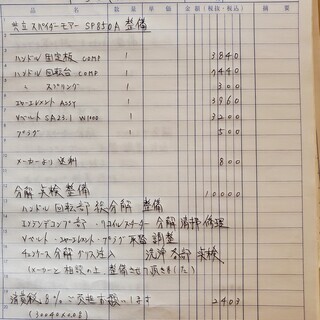 品名 数量 単価 金額(税抜・税込) 摘要
共立 スパイダーモアー SP850A 整備
ハンドル 固定板 COMP 1 3840
ハンドル 回転台 COMP 1 7440
〃 スプリング 1 300
エヤーエレメント ASSY 1 3960
Vベルト SA23.1 W800 1 3200
プラグ 1 500
メーカーより 送料 800
分解 点検 整備 10000
ハンドル 回転部 後分解 整備
エンジンコンプ部・リコイルスターター 分解 清掃 修理
Vベルト・エヤーエレメント・プラグ 取替 調整
ギヤケース 分解 グリス注入 洗浄 各部 点検
(メーカーと 相談の上 整備させて頂きました)
消費税 8% ご負担お願いします 2403
(30040×0.08)